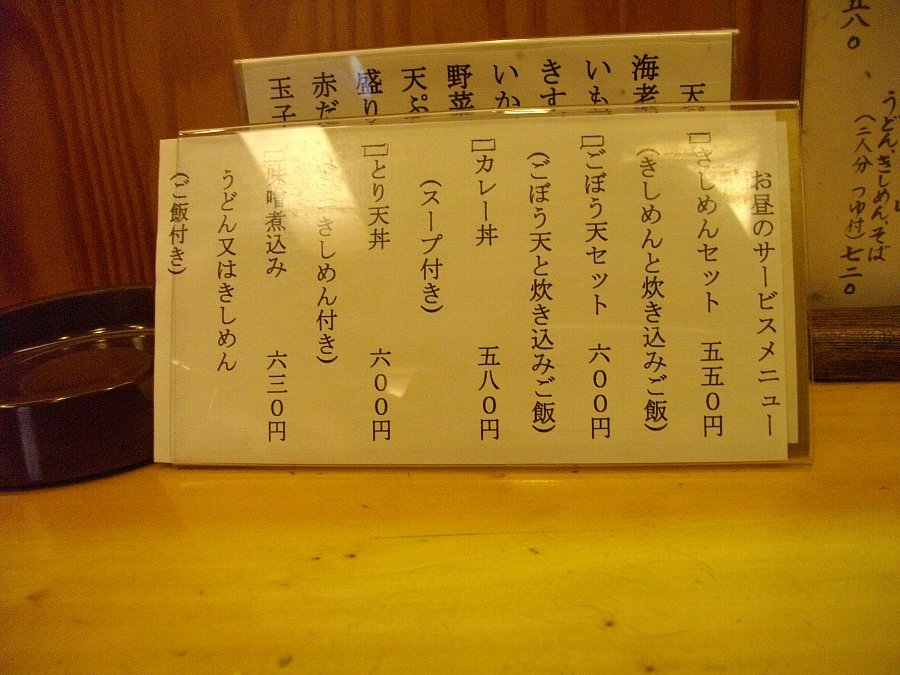 お昼のサービスメニュー
きしめんセット 五五０円
(きしめんと炊き込みご飯)
ごぼう天セット 六００円
(ごぼう天と炊き込みご飯)
カレー丼 五八０円
(スープ付き)
とり天丼 六００円
きしめん付き)
味噌煮込み 六三０円
うどん又はきしめん
(ご飯付き)
天
海老
いも
きす
いか
野菜
天ぷ
盛り
赤だ
玉子
五八０
うどん、きしめん、そば
(二人分 つゆ付) 七二０